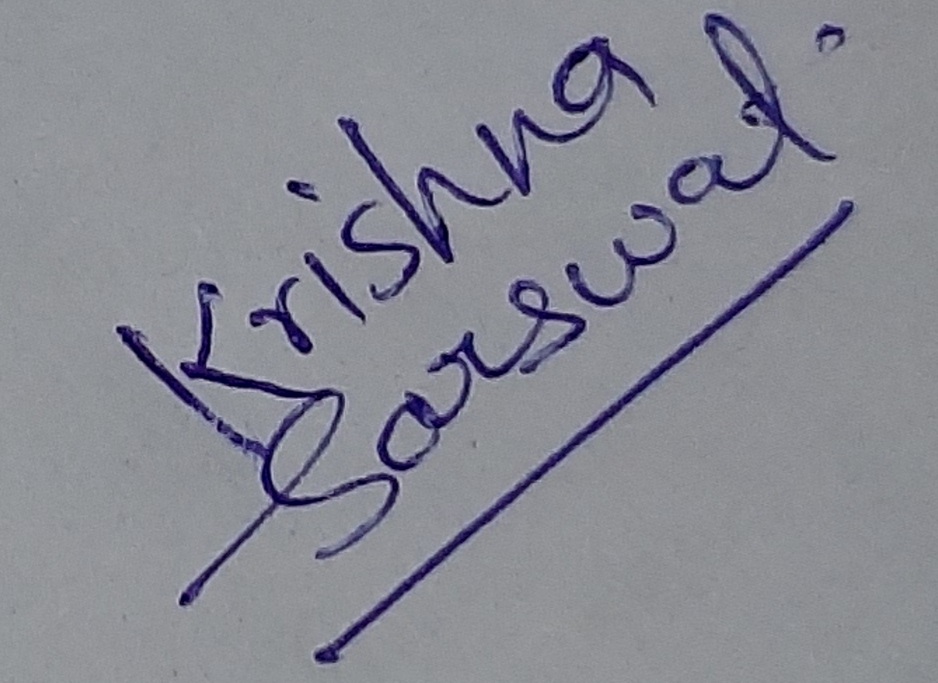 Krishna
Sarswat.